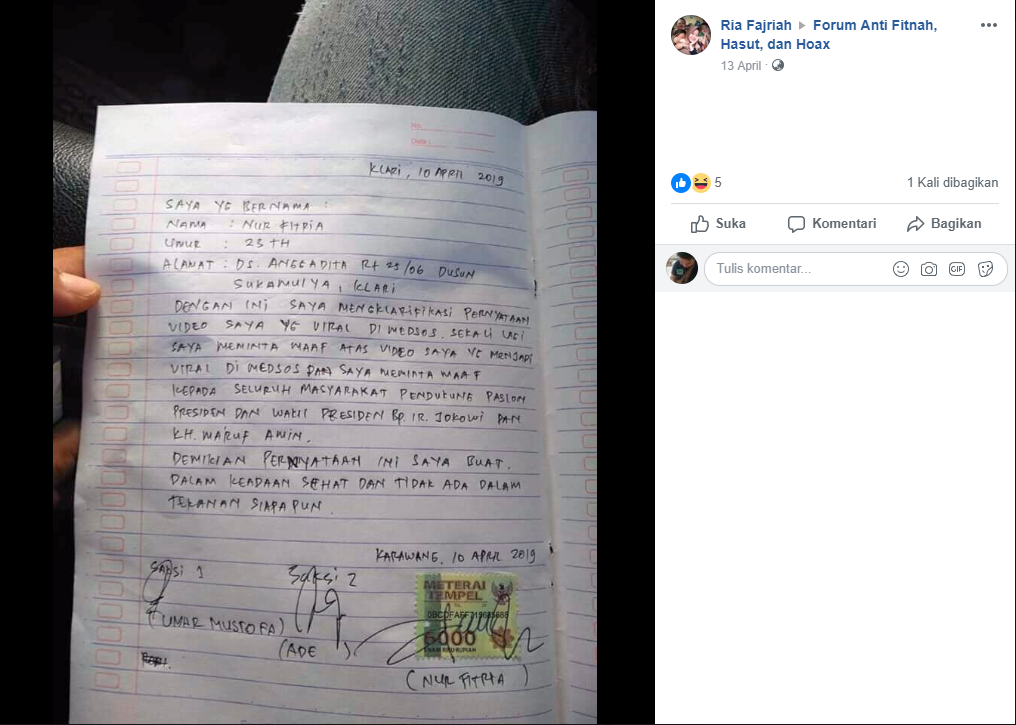 No.
Date :
KLARI, 10 APRIL 2019
SAYA YG BERNAMA :
NAMA : NUR FITRIA
UMUR : 23 TH
ALAMAT : DS. ANGGADITA Rt 23/06 DUSUN
SUKAMULYA, KLARI
DENGAN INI SAYA MENGKLARIFIKASI PERNYATAAN
VIDEO SAYA YG VIRAL DI MEDSOS. SEKALI LAGI
SAYA MEMINTA MAAF ATAS VIDEO SAYA YG MENJADI
VIRAL DI MEDSOS DAN SAYA MEMINTA MAAF
KEPADA SELURUH MASYARAKAT PENDUKUNG PASLON
PRESIDEN DAN WAKIL PRESIDEN BP. IR. JOKOWI DAN
KH. MA'RUF AMIN.
DEMIKIAN PERNYATAAN INI SAYA BUAT.
DALAM KEADAAN SEHAT DAN TIDAK ADA DALAM
TEKANAN SIAPAPUN.
KARAWANG, 10 APRIL 2019
SAKSI 1
SAKSI 2
METERAI
TEMPEL
6000
ENAM RIBU RUPIAH
(UMAR MUSTOFA)
(ADE)
(NUR FITRIA)
Ria Fajriah ▸ Forum Anti Fitnah,
Hasut, dan Hoax
13 April ·
5
1 Kali dibagikan
Suka
Komentari
Bagikan
Tulis komentar...
GIF